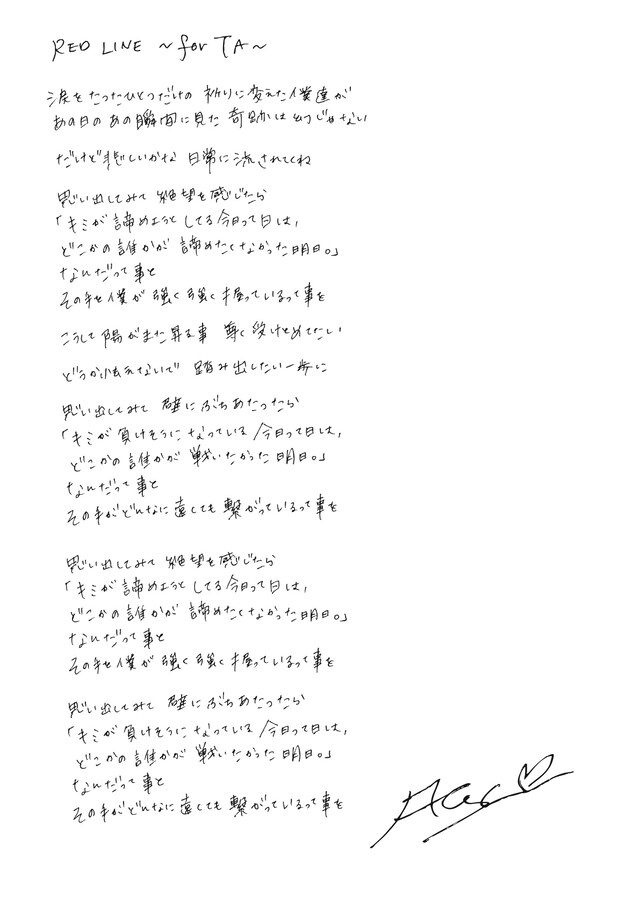 RED LINE ~for TA~
涙をたったひとつだけの 祈りに変えた僕達が
あの日のあの瞬間に見た 奇跡は幻じゃない
だけど悲しいかな 日常に流されてくね
思い出してみて 絶望を感じたら
「キミが諦めようと してる今日って日は,
どこかの誰かが 諦めたくなかった明日。」
なんだって事と
その手を僕が 強く強く握っているって事を
こうして陽がまた昇る事 尊く受けとめてたい
どうか怯えないで 踏み出したい一歩に
思い出してみて 壁にぶちあたったら
「キミが負けそうになっている 今日って日は,
どこかの誰かが 戦いたかった明日。」
なんだって事と
その手がどんなに遠くても繋がっているって事を
思い出してみて 絶望を感じたら
「キミが諦めようと してる今日って日は,
どこかの誰かが 諦めたくなかった明日。」
なんだって事と
その手を僕が 強く強く握っているって事を
思い出してみて 壁にぶちあたったら
「キミが負けそうになっている 今日って日は,
どこかの誰かが 戦いたかった明日。」
なんだって事と
その手がどんなに遠くても繋がっているって事を